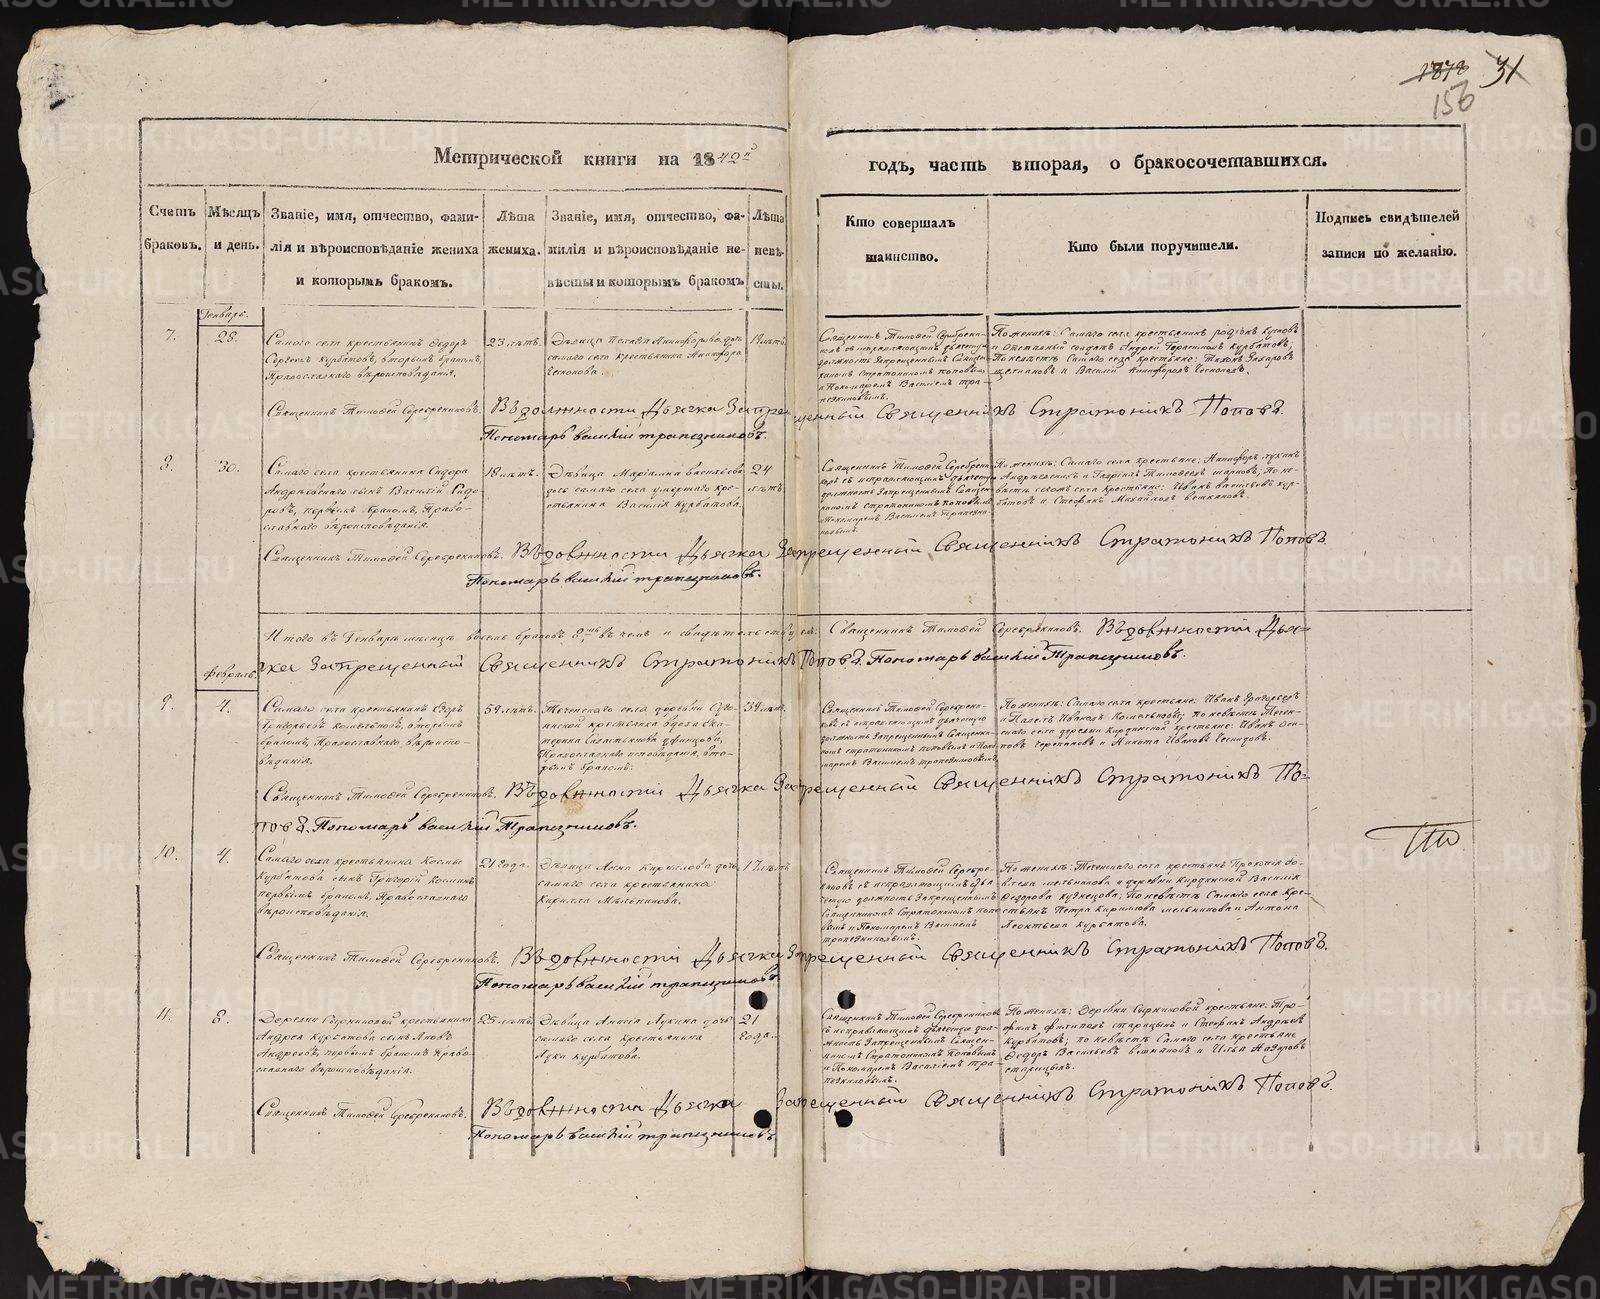 1878 31
156
Метрической книги на 1842й
годъ, часть вторая, о бракосочетавшихся.
Счетъ браковъ.
Мѣсяцъ и день.
Званіе, имя, отчество, фами-
лія и вѣроисповѣданіе жениха
и которымъ бракомъ.
Лѣта
жениха.
Званіе, имя, отчество, фа-
милія и вѣроисповѣданіе не-
вѣсты и которымъ бракомъ
Лѣта
невѣ-
сты.
Кто совершалъ
таинство.
Кто были поручители.
Подпись свидѣтелей
записи по желанію.
Генварь.
7.
28.
Самаго села крестьянинъ Ѳедоръ
Сергеевъ Курбатовъ, вторымъ бракомъ,
Православнаго вѣроисповѣданія.
23 лѣтъ.
Дѣвица Пелагія Никифорова дочь
самаго села крестьянина Никифора
Чеснокова.
19 лѣтъ.
Священникъ Тимоѳей Серебренни-
ковъ съ исправляющимъ дьячецкую
должность Запрещеннымъ Священ-
никомъ Стратоникомъ Поповымъ
и Пономаремъ Василіемъ Тра-
пезниковымъ.
По женихѣ: Самаго села крестьянинъ
и отставный солдатъ Андрей Герасимовъ Курбатовъ;
По невѣстѣ Самаго села крестьяне: Тихонъ Захаровъ
и Василій Никифоровъ Чесноковъ.
Священникъ Тимоѳей Серебренниковъ. Въ должности Дьячка Запрещенный Священникъ Стратоникъ Поповъ.
Пономарь Василій Трапезниковъ.
8.
30.
Самаго села крестьянина Сидора
Андрѣевскаго сынъ Василій Сидо-
ровъ, первымъ бракомъ, Право-
славнаго вѣроисповѣданія.
18 лѣтъ.
Дѣвица Маріамна Васильева
дочь самаго села умершаго кре-
стьянина Василія Курбатова.
24
лѣтъ.
Священникъ Тимоѳей Серебренни-
ковъ съ исправляющимъ дьячецкую
должность Запрещеннымъ Священ-
никомъ Стратоникомъ Поповымъ
и Пономаремъ Василіемъ Трапезни-
ковымъ.
По женихѣ: Самаго села крестьяне: Никифоръ Лукинъ
Андрѣевскій и Гавріилъ Тимоѳеевъ; По не-
вѣстѣ тогожъ села крестьяне: Иванъ Васильевъ Кур-
батовъ и Стефанъ Михайловъ
Священникъ Тимоѳей Серебренниковъ. Въ должности Дьячка Запрещенный Священникъ Стратоникъ Поповъ.
Пономарь Василій Трапезниковъ.
Итого въ Генварѣ мѣсяцѣ восемь браковъ 8мь въ чемъ и свидѣтельствуемъ: Священникъ Тимоѳей Серебренниковъ. Въ должности Дья-
чка Запрещенный Священникъ Стратоникъ Поповъ. Пономарь Василій Трапезниковъ.
Февраль.
9.
4.
Самаго села крестьянинъ Егоръ
Григорьевъ, вторымъ
бракомъ, Православнаго, вѣроиспо-
вѣданія.
59 лѣтъ.
Теченскаго села деревни
крестьянка вдова Ека-
терина Севастьянова
Православнаго исповѣданія, вто-
рымъ бракомъ.
39 лѣтъ.
Священникъ Тимоѳей Серебренни-
ковъ съ исправляющимъ дьячецкую
должность Запрещеннымъ Священни-
комъ Стратоникомъ Поповымъ и Поно-
маремъ Василіемъ Трапезниковымъ.
По женихѣ: Самаго села крестьяне: Иванъ Григорьевъ
и Павелъ Ивановъ; по невѣстѣ Течен-
скаго села деревни Кирдинской крестьяне: Иванъ Оси-
повъ Черепановъ и Никита Ивановъ
Священникъ Тимоѳей Серебренниковъ. Въ должности Дьячка Запрещенный Священникъ Стратоникъ По-
повъ. Пономарь Василій Трапезниковъ.
10.
4.
Самаго села крестьянина Космы
Курбатова сынъ Григорій Косминъ
первымъ бракомъ, Православнаго
вѣроисповѣданія.
21 года.
Дѣвица Анна Кирилова дочь
самаго села крестьянина
Кирилла Мѣльникова.
17 лѣтъ
Священникъ Тимоѳей Серебрен-
никовъ съ исправляющимъ дья-
чецкую должность Запрещеннымъ
Священникомъ Стратоникомъ Попо-
вымъ и Пономаремъ Василіемъ
Трапезниковымъ.
По женихѣ: Теченскаго села крестьянъ Прокопія
Мельникова и деревни Кирдинской Василія
Ѳедорова Кузнецова; По невѣстѣ Самаго села Кре-
стьянъ Петра Кирилова Мельникова и Антона
Леонтьева Курбатова.
Священникъ Тимоѳей Серебренниковъ. Въ должности Дьячка Запрещенный Священникъ Стратоникъ Поповъ.
Пономарь Василій Трапезниковъ
11.
8.
Деревни крестьянина
Андрея Курбатова сынъ Яковъ
Андреевъ, первымъ бракомъ Право-
славнаго вѣроисповѣданія.
25 лѣтъ.
Дѣвица Анисія Лукина дочь
самаго села крестьянина
Луки Курбатова.
21
года.
Священникъ Тимоѳей Серебренниковъ
съ исправляющимъ дьячецкую дол-
жность Запрещеннымъ Священ-
никомъ Стратоникомъ Поповымъ
и Пономаремъ Василіемъ Тра-
пезниковымъ.
По женихѣ: Деревни крестьяне: Тро-
фимъ Филиповъ Старицынъ и Стефанъ Андрѣевъ
Курбатовъ; по невѣстѣ Самаго села крестьяне
Ѳедоръ Васильевъ и Илья Назаровъ
Старицынъ.
Священникъ Тимоѳей Серебренниковъ. Въ должности Дьячка Запрещенный Священникъ Стратоникъ Поповъ.
Пономарь Василій Трапезниковъ.
METRIKI.GASO-URAL.RU